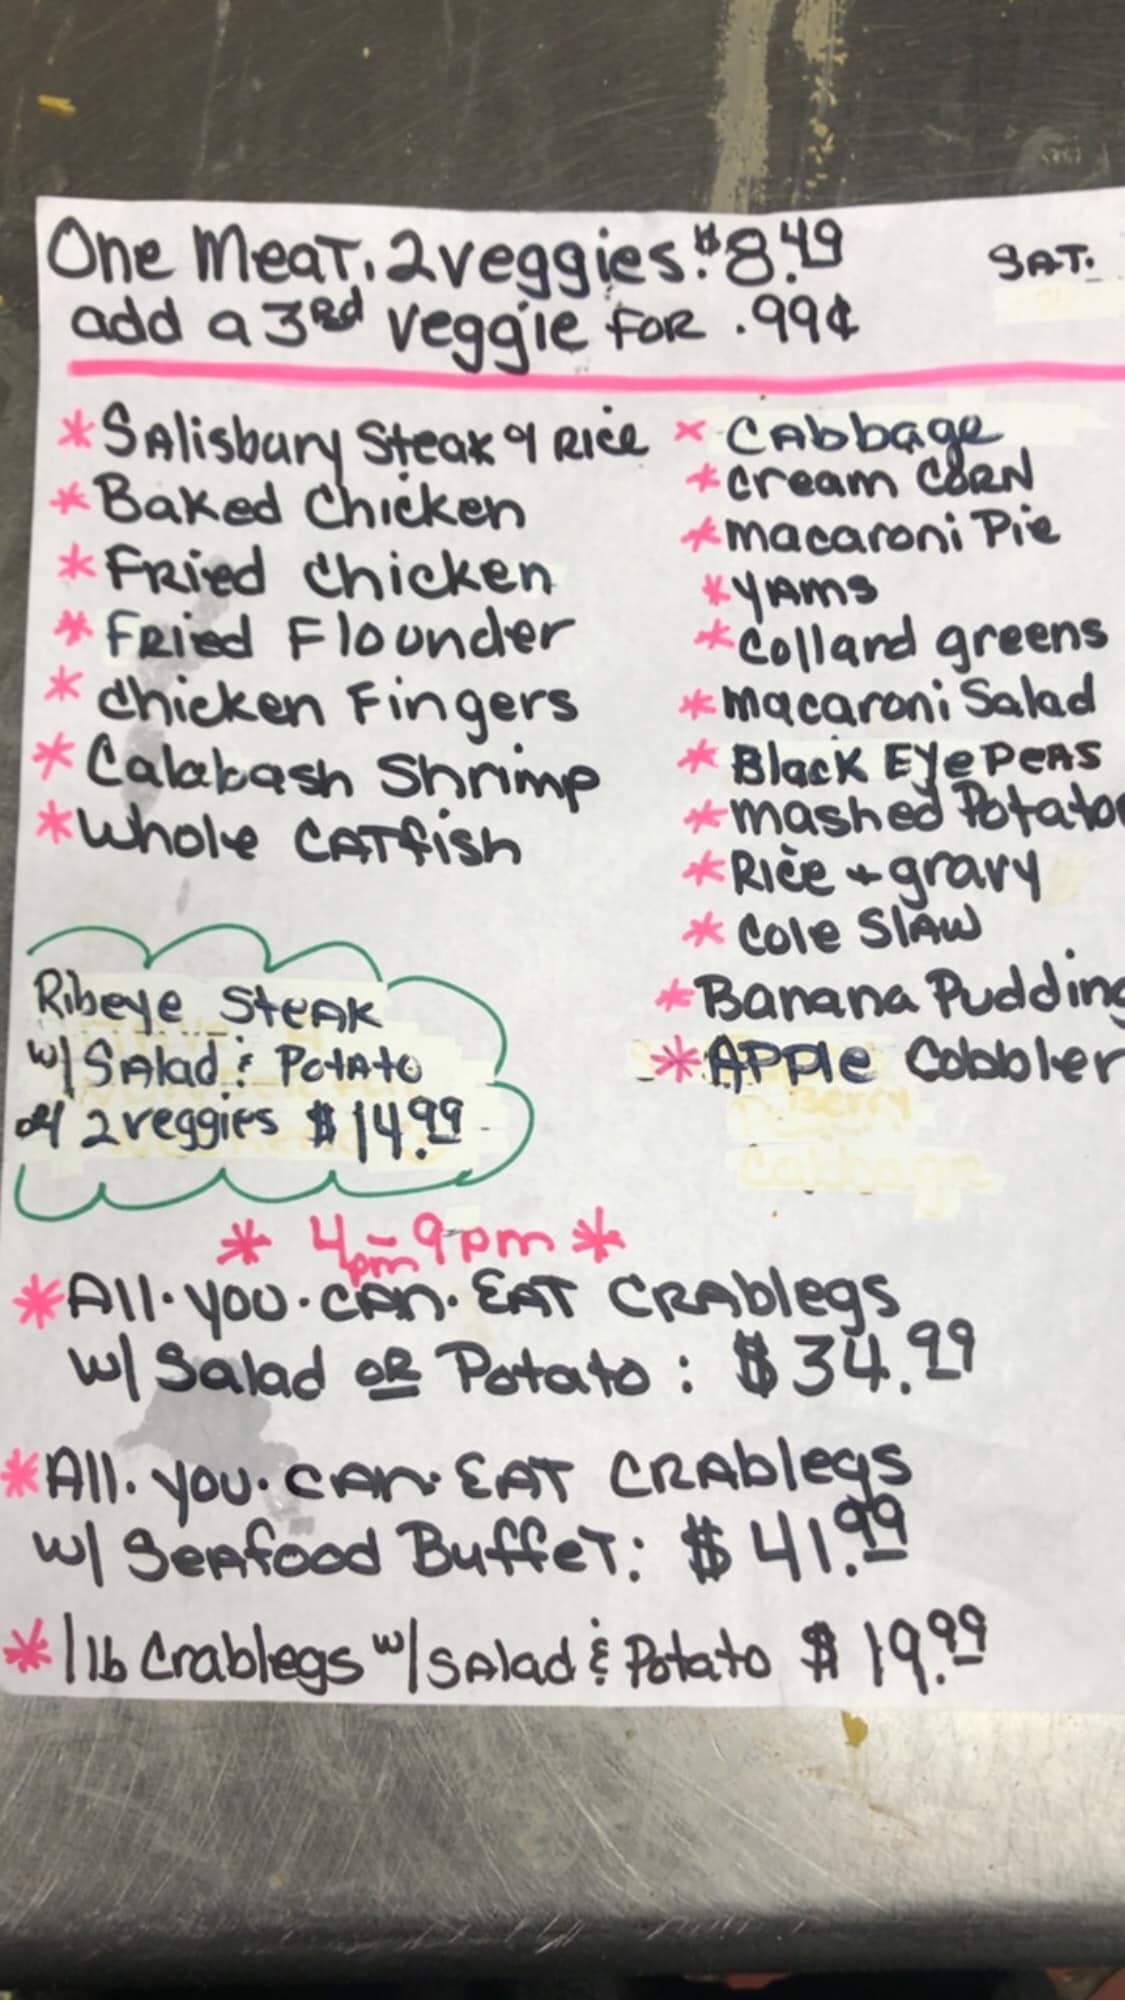 One Meat, 2 veggies: $8.49
SAT.
add a 3rd veggie for .99¢
* Salisbury Steak & Rice
* Baked Chicken
* Fried Chicken
* Fried Flounder
* Chicken Fingers
* Calabash Shrimp
* Whole Catfish
* Cabbage
* Cream Corn
* Macaroni Pie
* Yams
* Collard greens
* Macaroni Salad
* Black Eye Peas
* Mashed Potato
* Rice + gravy
* Cole Slaw
* Banana Pudding
* Apple Cobbler
Berry
Cabbage
Ribeye Steak
w/ Salad & Potato
or 2 veggies $14.99
* 4pm-9pm *
* All. you. can. Eat Crablegs
w/ Salad or Potato: $34.99
* All. you. can. Eat Crablegs
w/ Seafood Buffet: $41.99
* 1 lb Crablegs w/ Salad & Potato $19.99